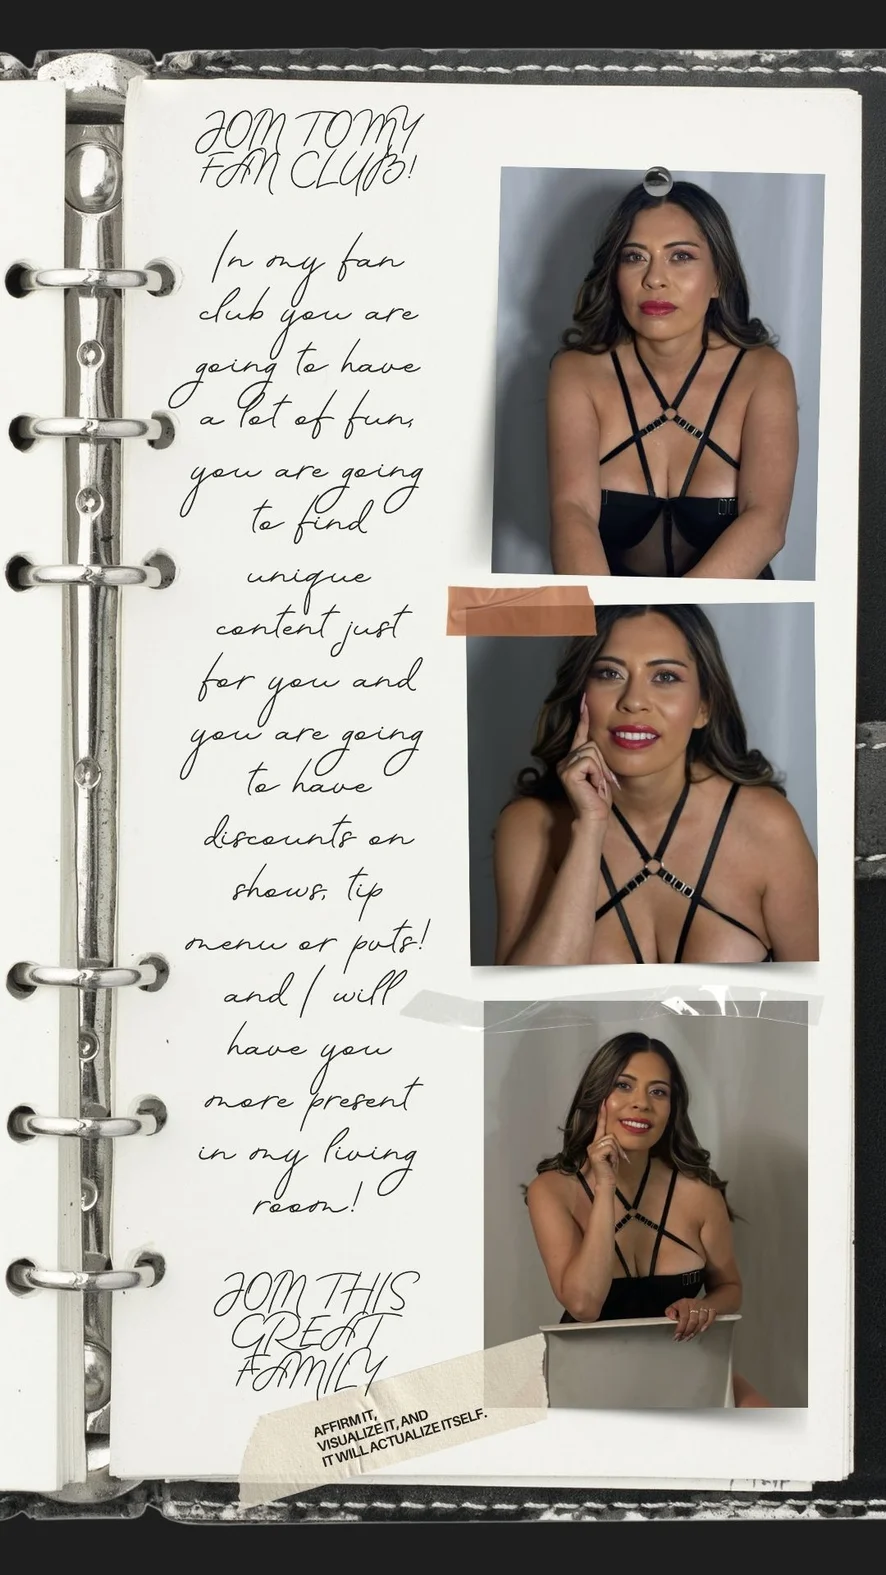 JOIN TO MY
FAN CLUB!
In my fan
club you are
going to have
a lot of fun,
you are going
to find
unique
content just
for you and
you are going
to have
discounts on
shows, tip
menu or pvts!
and I will
have you
more present
in my living
room!
JOIN THIS
GREAT
FAMILY
AFFIRM IT,
VISUALIZE IT, AND
IT WILL ACTUALIZE ITSELF.